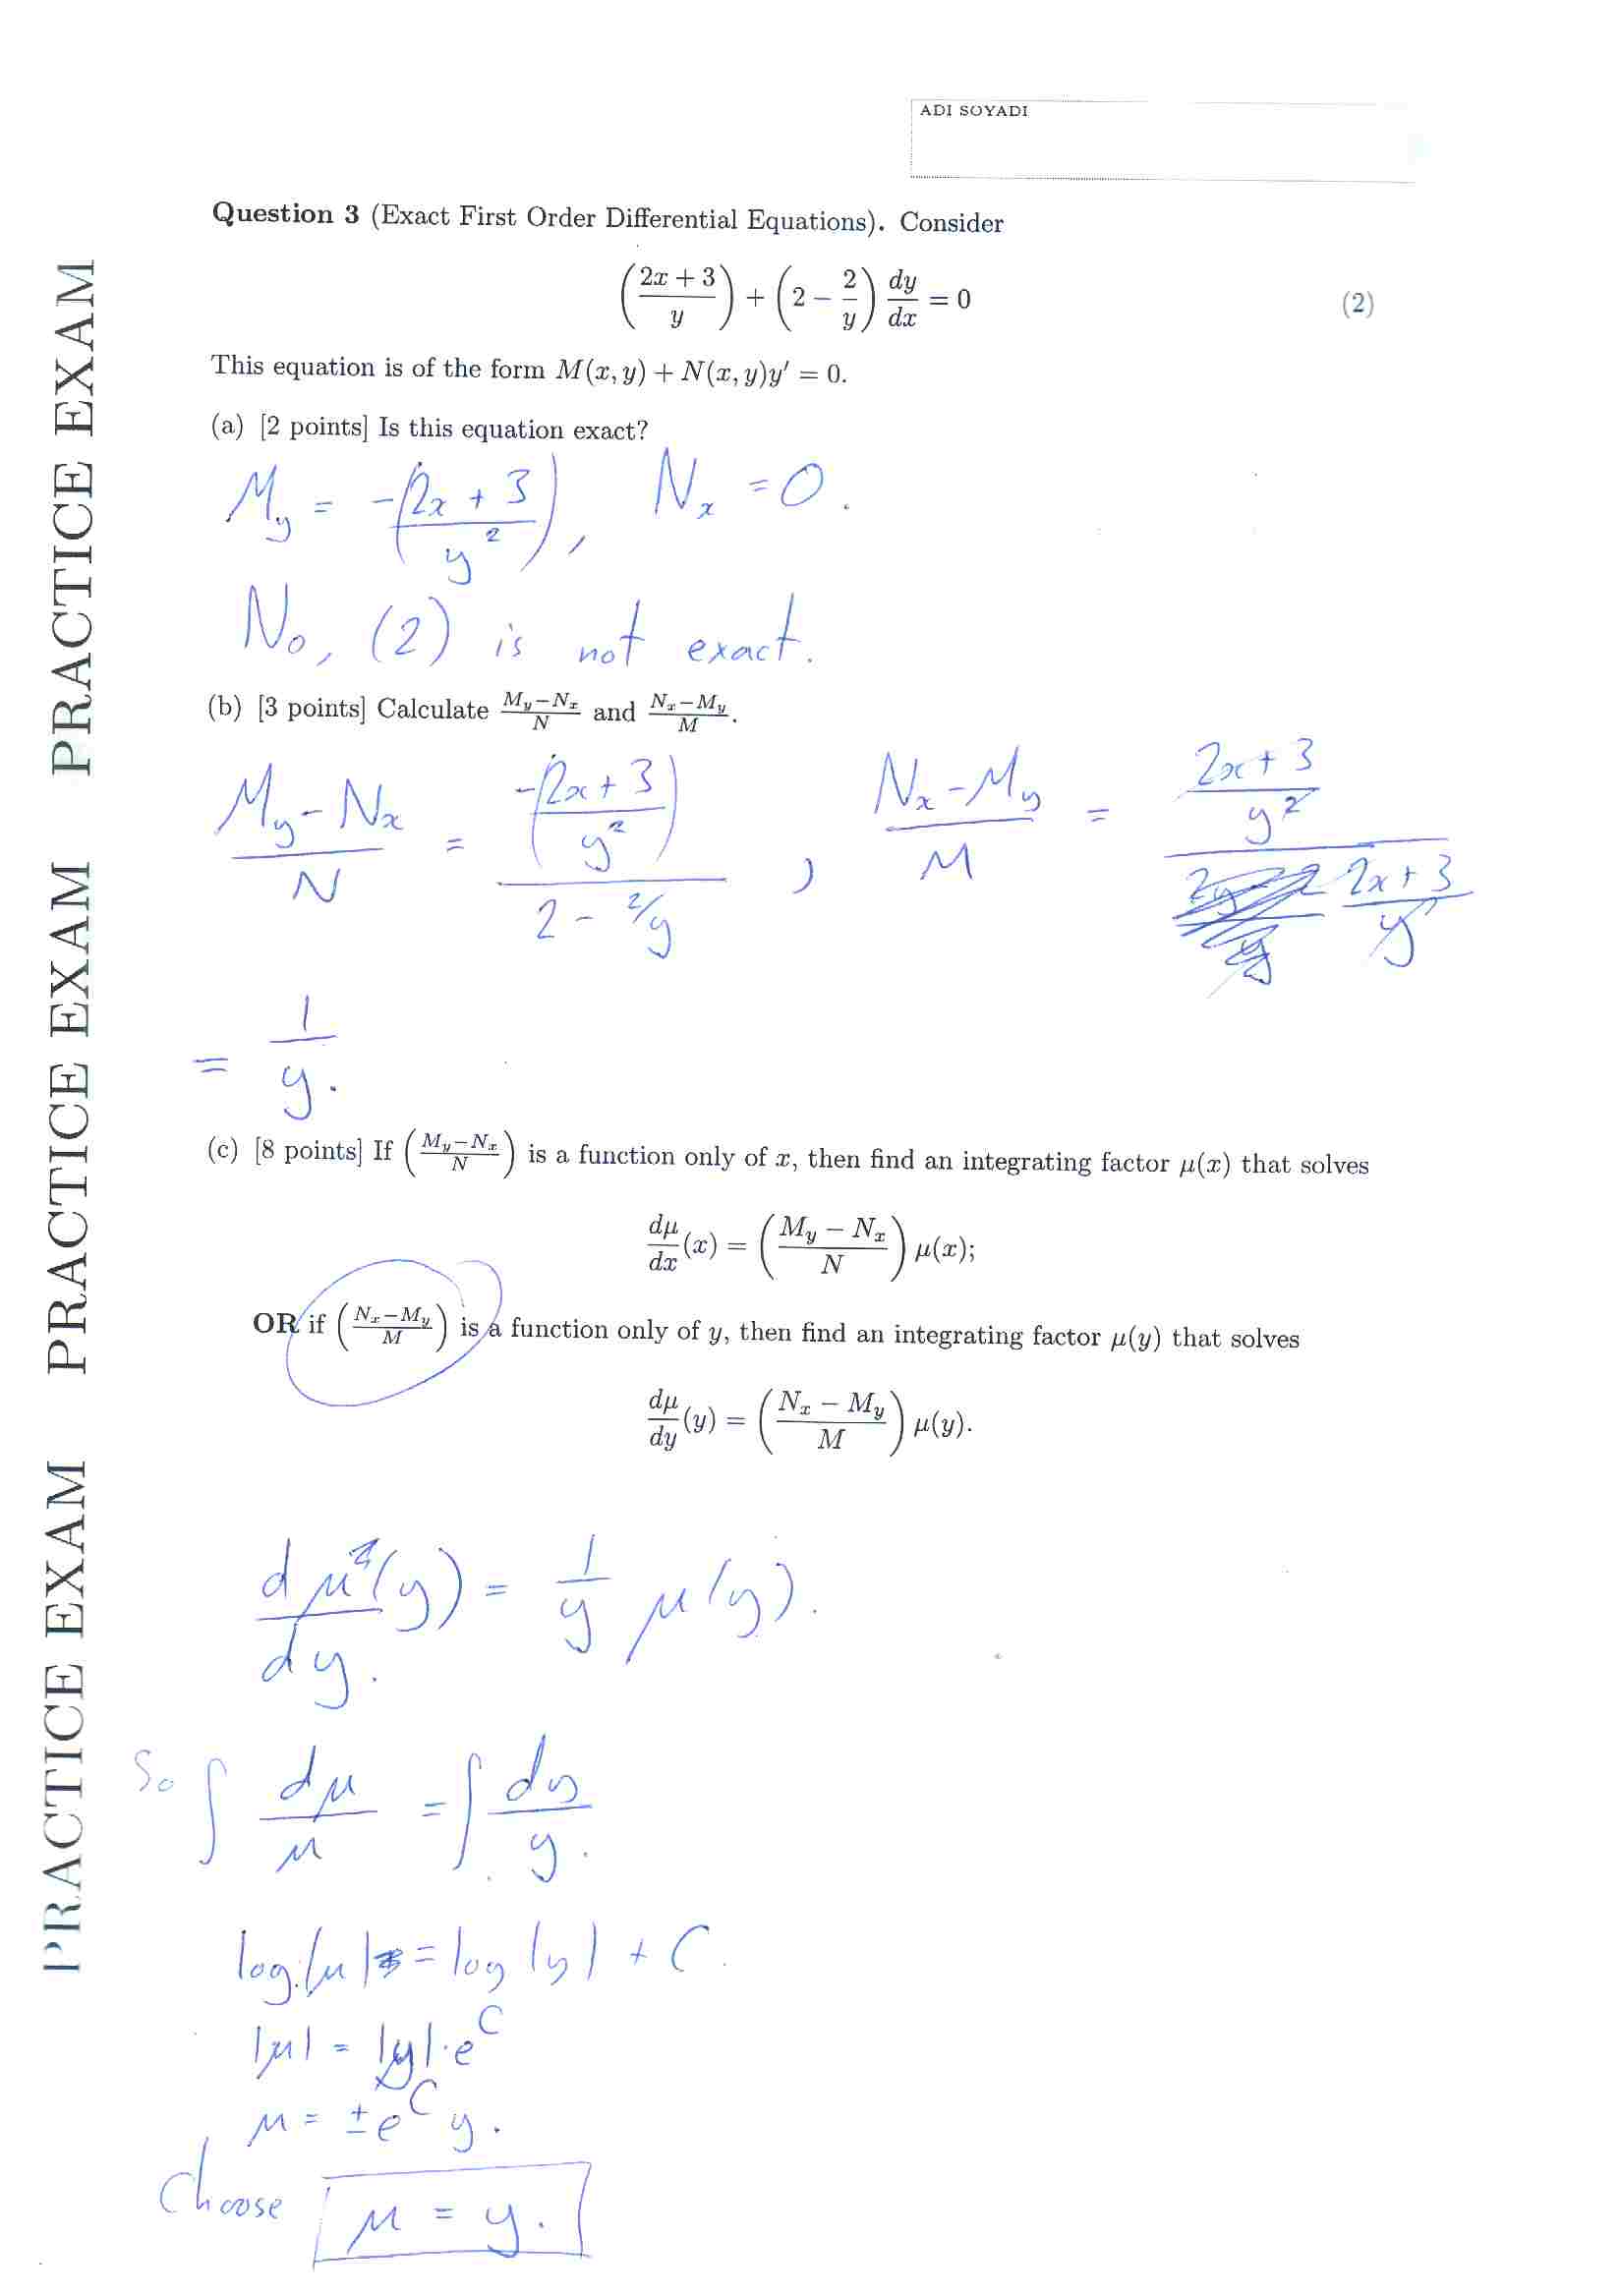 ADI SOYADI
Question 3 (Exact First Order Differential Equations). Consider
(2x + 3 / y) + (2 − 2/y) dy/dx = 0 (2)
This equation is of the form M(x, y) + N(x, y)y′ = 0.
(a) [2 points] Is this equation exact?
M_y = −(2x + 3 / y²), N_x = 0.
No, (2) is not exact.
(b) [3 points] Calculate (M_y−N_x)/N and (N_x−M_y)/M.
(M_y − N_x)/N = −((2x + 3)/y²) / (2 − 2/y), (N_x − M_y)/M = ((2x + 3)/y²) / ((2x + 3)/y)
= 1/y.
(c) [8 points] If ((M_y−N_x)/N) is a function only of x, then find an integrating factor μ(x) that solves
dμ/dx (x) = ((M_y − N_x)/N) μ(x);
OR if ((N_x−M_y)/M) is a function only of y, then find an integrating factor μ(y) that solves
dμ/dy (y) = ((N_x − M_y)/M) μ(y).
dμ/dy (y) = 1/y μ(y).
So ∫ dμ/μ = ∫ dy/y.
log |μ| = log |y| + C.
|μ| = |y| · e^C
μ = ± e^C y.
Choose μ = y.
PRACTICE EXAM PRACTICE EXAM PRACTICE EXAM PRACTICE EXAM